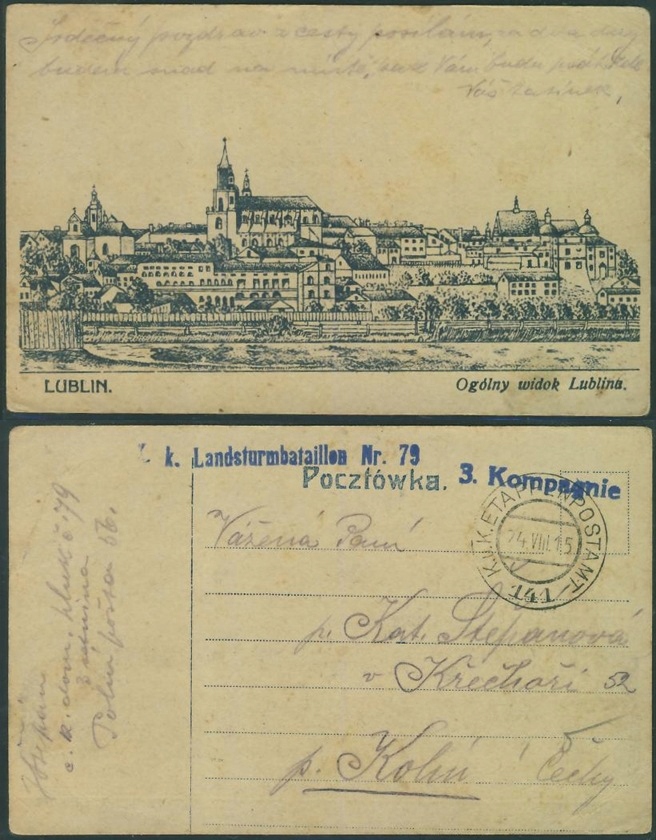 Srdečný pozdrav z cesty posílám, za dva dny
budem snad na místě, Vám budu psát
Váš tatínek,
LUBLIN.
Ogólny widok Lublina.
k. Landsturmbataillon Nr. 79
Pocztówka.
3. Kompagnie
K.u.K. ETAPPENPOSTAMT
24.VIII.15
141
Vážená Paní
p. Kat. Štěpanová
v Křechoři 52
p. Kolín Čechy
Štěpán
c. k. dom. pluk č 79
3 setnina
Polní pošta 56.